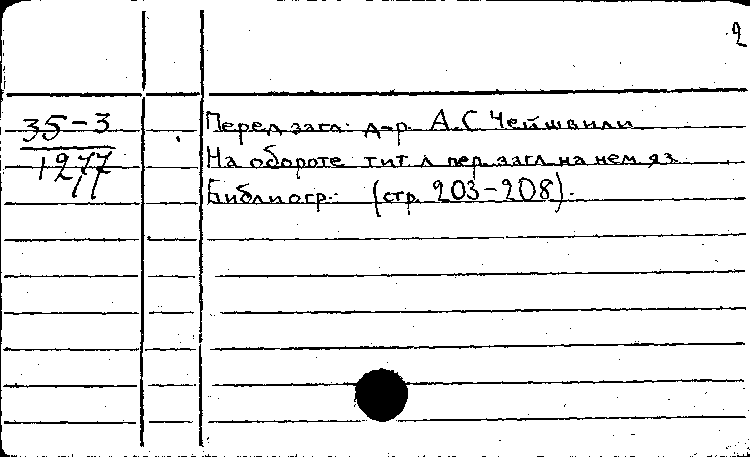 2
35-3
1277
Перед загл: д-р. А.С Чейшвили
На обороте тит л пер. загл на нем яз
Библиогр.: (стр. 203-208).